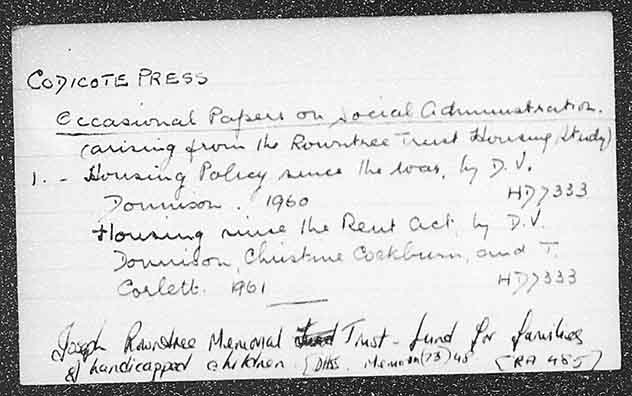 CODICOTE PRESS
Occasional Papers on Social Administration.
(arising from the Rowntree Trust Housing Study)
1. - Housing Policy since the war, by D.V.
Donnison. 1960 HD7333
Housing since the Rent Act, by D.V.
Donnison, Christine Cockburn, and T.
Corlett. 1961 HD7333
Joseph Rowntree Memorial Trust - fund for families
of handicapped children. [DHSS. Memo (73) 48 [RA 485]